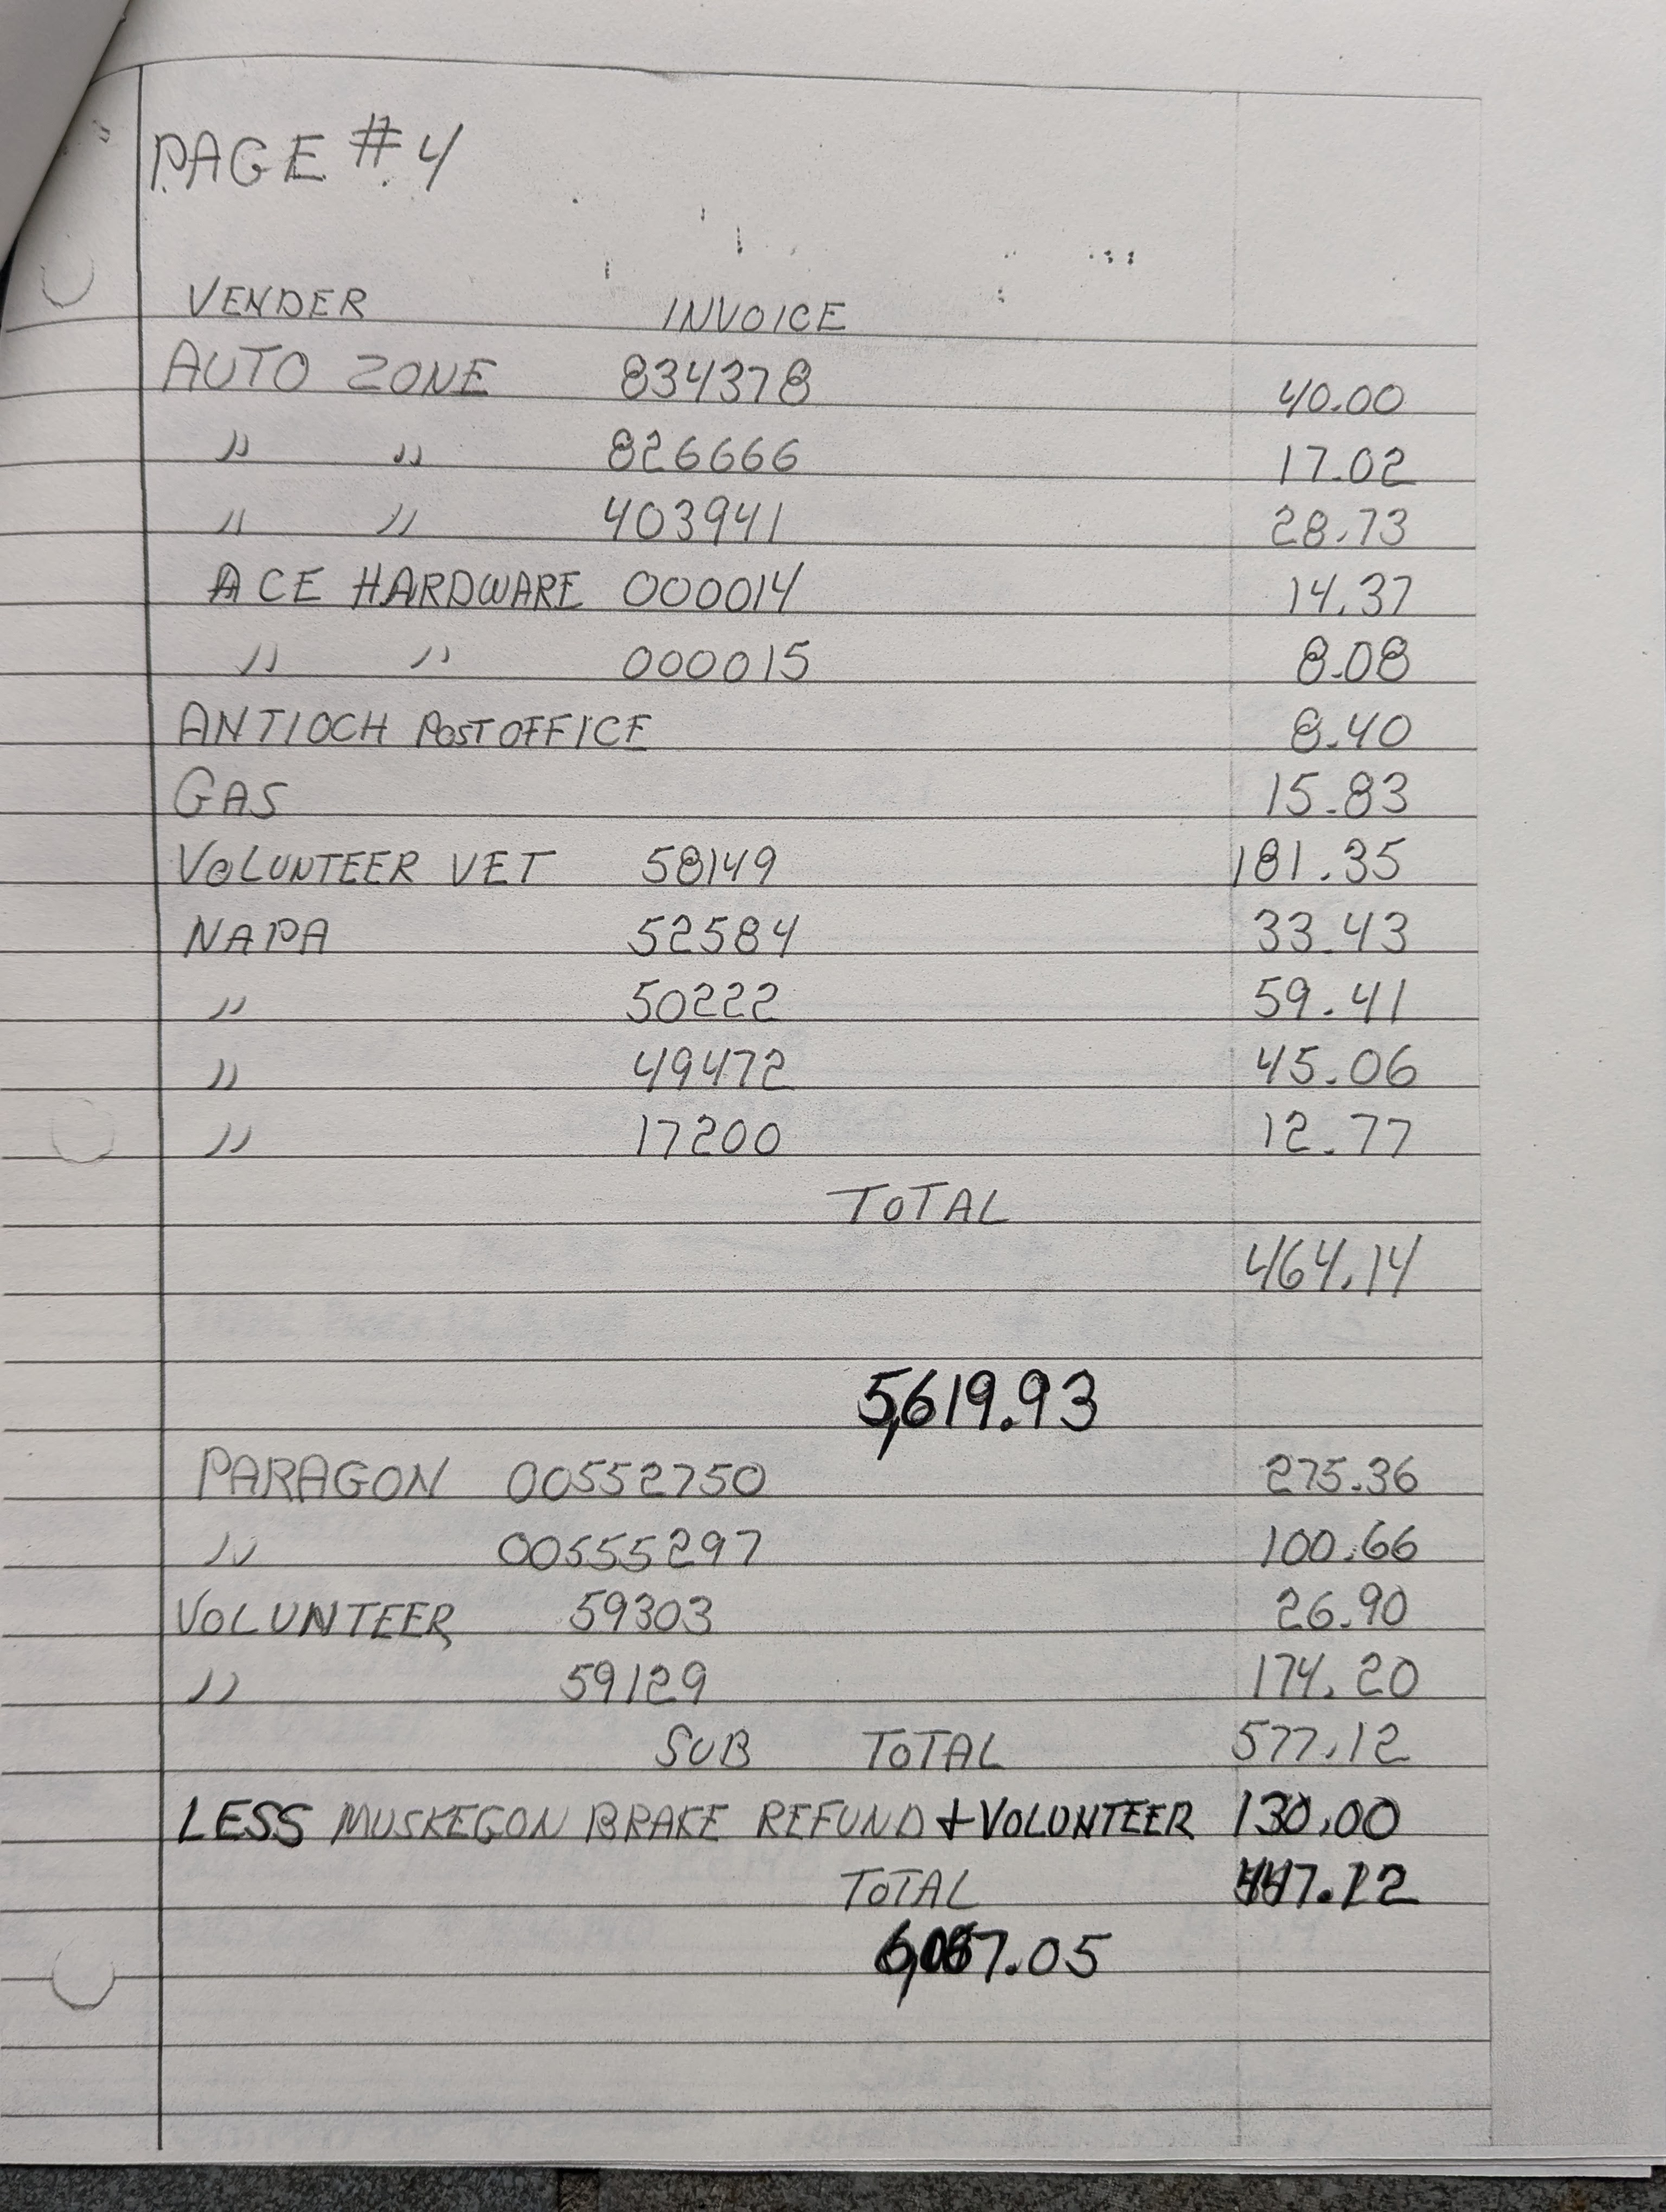 PAGE #4
VENDER INVOICE
AUTO ZONE 834378 40.00
" " 826666 17.02
" " 403941 28.73
ACE HARDWARE 000014 14.37
" " 000015 8.08
ANTIOCH POST OFFICE 8.40
GAS 15.83
VOLUNTEER VET 58149 181.35
NAPA 52584 33.43
" 50222 59.41
" 49472 45.06
" 17200 12.77
TOTAL
464.14
5,619.93
PARAGON 00552750 275.36
" 00555297 100.66
VOLUNTEER 59303 26.90
" 59129 174.20
SUB TOTAL 577.12
LESS MUSKEGON BRAKE REFUND + VOLUNTEER 130.00
TOTAL 447.12